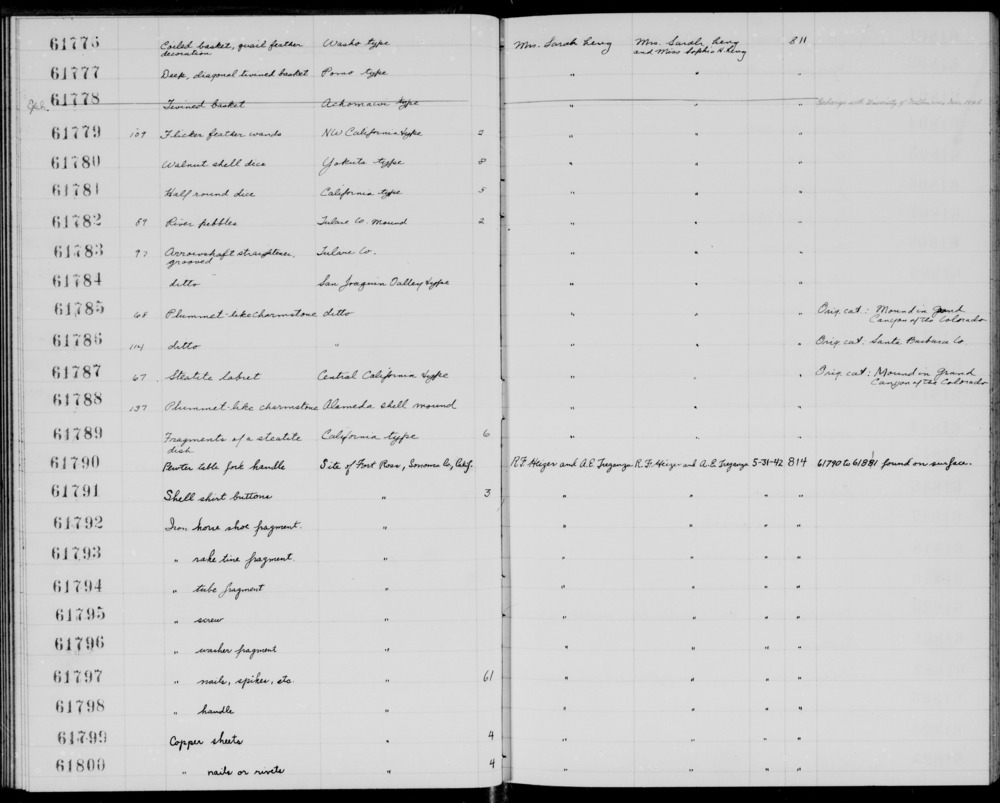 61775 Coiled basket, quail feather decoration Washo type Mrs. Sarah Mrs. Sarah and Miss Sophia H. 811
61777 Deep, diagonal twined basket Pomo type " " "
61778 Twined basket Achomawi type " " " Exchange with University of
61779 109 Flicker feather wands NW California type 2 " " "
61780 Walnut shell dice Yokuts type 8 " " "
61781 Half round dice California type 5 " " "
61782 89 River pebbles Tulare Co. mound 2 " " "
61783 97 Arrowshaft straightener, grooved Tulare Co. " " "
61784 ditto San Joaquin Valley type " " "
61785 68 Plummet-like charmstone ditto " " " Orig. cat.: Mound in Grand Canyon of the Colorado
61786 114 ditto " " " " Orig. cat. Santa Barbara Co.
61787 67 Steatite labret Central California type " " " Orig. cat: Mound in Grand Canyon of the Colorado
61788 137 Plummet-like charmstone Alameda shell mound " " "
61789 Fragments of a steatite dish California type 6 " " "
61790 Pewter table fork handle Site of Fort Ross, Sonoma Co, Calif. R.F. Heizer and A.E. Treganza R.F. Heizer and A.E. Treganza 5-31-42 814 61790 to 61881 found on surface.
61791 Shell shirt buttons " 3 " " " "
61792 Iron horse shoe fragment. " " " " "
61793 " rake tine fragment. " " " " "
61794 " tube fragment " " " " "
61795 " screw " " " " "
61796 " washer fragment " " " " "
61797 " nails, spikes, etc. " 61 " " " "
61798 " handle " " " " "
61799 Copper sheets " 4 " " " "
61800 " nails or rivets " 4 " " " "